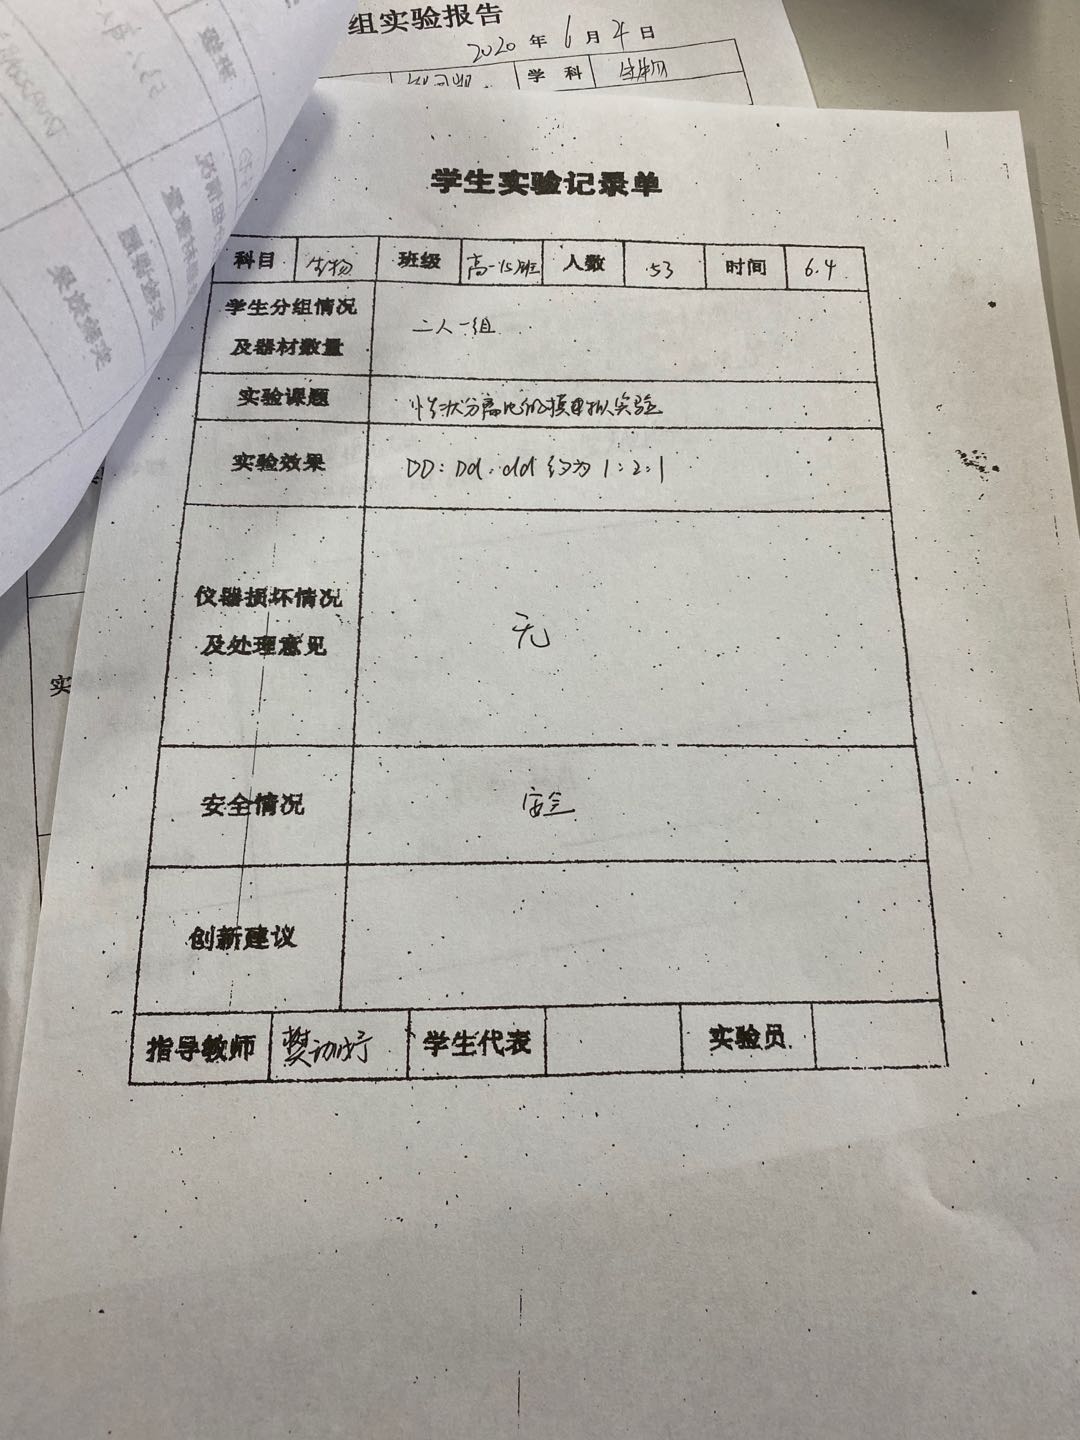 组实验报告
2020 年 6 月 4 日
学 科 生物
学生实验记录单
科目 生物 班级 高一15班 人数 53 时间 6.4
学生分组情况
及器材数量
二人一组
实验课题 性状分离比的模拟实验
实验效果 DD:Dd:dd 约为 1:2:1
仪器损坏情况
及处理意见
无
实
安全情况 安全
创新建议
指导教师 樊 学生代表 实验员